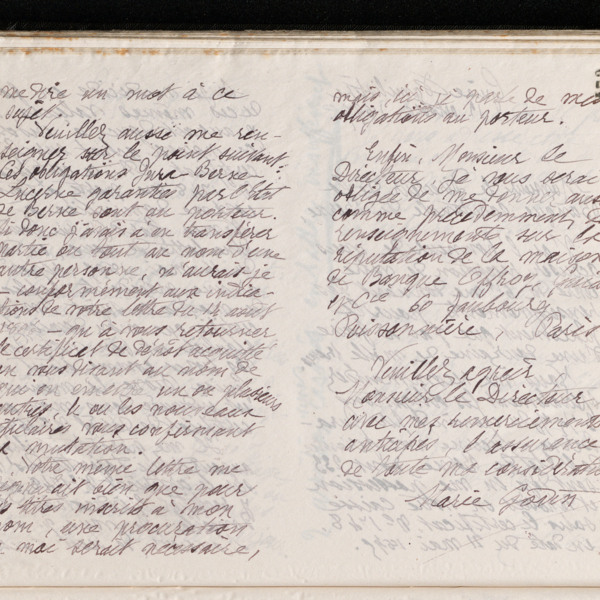 me dire un mot à ce
sujet.
Veuillez aussi me ren-
seigner sur le point suivant:
Les obligations Jura Berne
Lucerne garanties par l'Etat
de Berne sont au porteur.
Si donc j'avais à en transférer
partie ou tout au nom d'une
autre personne, n'aurais-je
conformément aux indica-
tions de votre lettre du 15 août
qu'à vous retourner
le certificat de dépôt acquitté
en vous disant au nom de
qui on en un ou plusieurs
autres, le ou les nouveaux
titulaires vous confirmant
la mutation.
Votre même lettre me
disait bien que pour
les titres inscrits à mon
nom, une procuration
de moi serait nécessaire,
mais, ici il de mes
obligations au porteur.
Enfin, Monsieur le
Directeur, je vous serai
obligée de me donner aussi
comme précédemment, des
renseignements sur la
réputation de la maison
de Banque Offroy,
& Cie 60 faubourg
Poissonnière, Paris
Veuillez agréer
Monsieur le Directeur
avec mes remerciements
anticipés, l'assurance
de toute ma considération
Marie